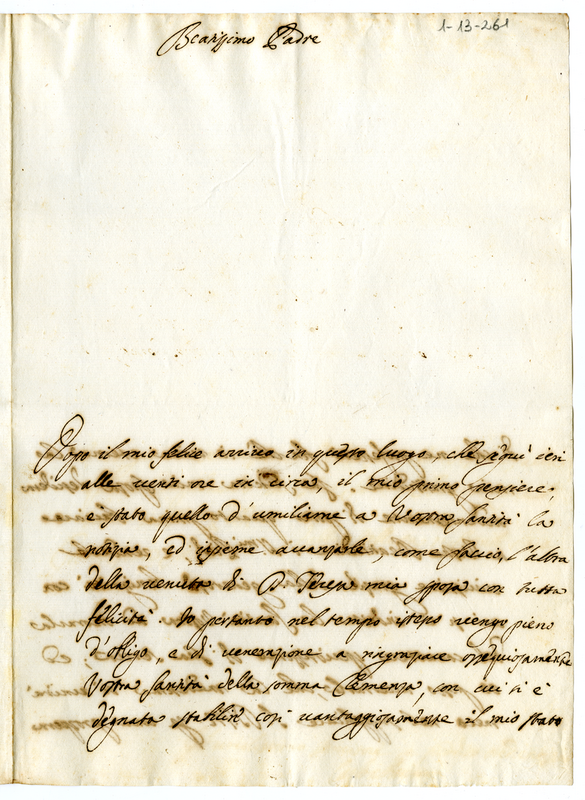 1-13-261
Beatissimo Padre
Dopo il mio felice arrivo in questo luogo che seguì ieri
alle venti ore in circa, il mio primo pensiere
è stato quello d'umiliarne a Vostra Santità la
notizia, ed insieme avanzarle, come faccio, l'altra
della venuta di D. Teresa mia sposa con tutta
felicità. Io pertanto nel tempo istesso vengo pieno
d'obligo, e di venerazione a ringraziare ossequiosamente
Vostra Santità della somma Clemenza, con cui si è
degnata stabilir così vantaggiosamente il mio stato